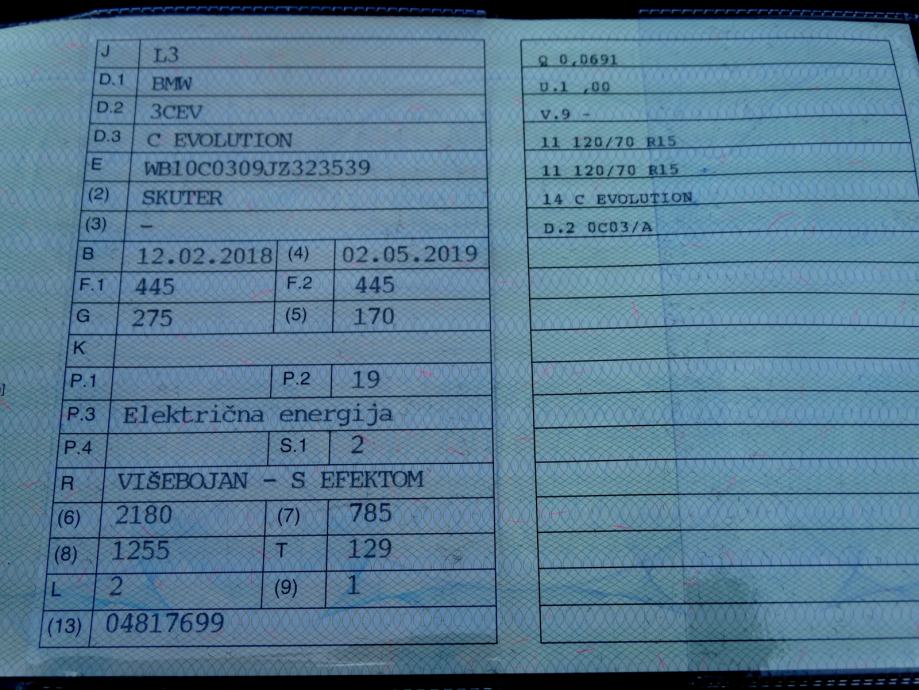 J L3
D.1 BMW
D.2 3CEV
D.3 C EVOLUTION
E WB10C0309JZ323539
(2) SKUTER
(3) –
B 12.02.2018 (4) 02.05.2019
F.1 445 F.2 445
G 275 (5) 170
K
P.1 P.2 19
P.3 Električna energija
P.4 S.1 2
R VIŠEBOJAN - S EFEKTOM
(6) 2180 (7) 785
(8) 1255 T 129
L 2 (9) 1
(13) 04817699
Q 0,0691
U.1 ,00
V.9 -
11 120/70 R15
11 120/70 R15
14 C EVOLUTION
D.2 0C03/A